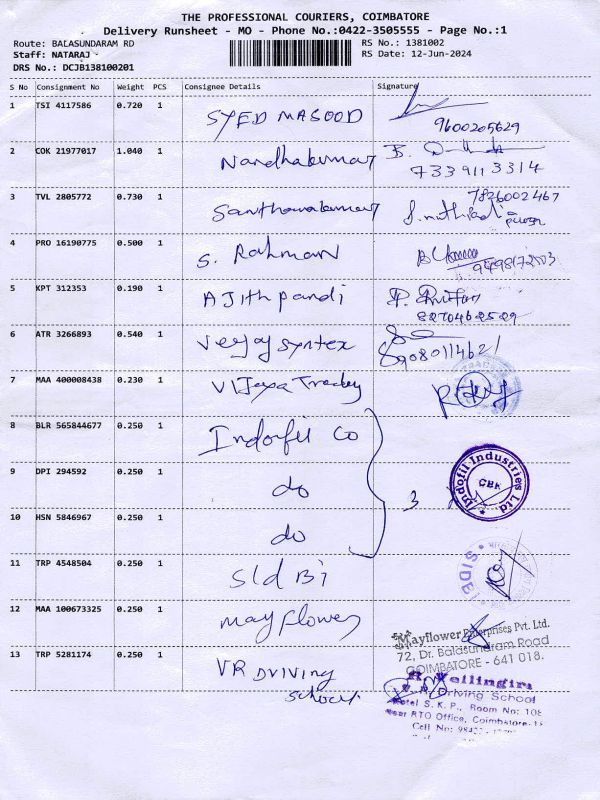 THE PROFESSIONAL COURIERS, COIMBATORE
Delivery Runsheet - MO - Phone No.:0422-3505555 - Page No.:1
Route: BALASUNDARAM RD
RS No.: 1381002
Staff: NATARAJ
RS Date: 12-Jun-2024
DRS No.: DCJB138100201
S No Consignment No Weight PCS Consignee Details Signature
1 TSI 4117586 0.720 1 SYED MASOOD
9600205629
2 COK 21977017 1.040 1 Nandhakumar
7339113314
3 TVL 2805772 0.730 1 Santhanakumar
7826002467
4 PRO 16190775 0.500 1 S. Rahman
5 KPT 312353 0.190 1 Ajith pandi
6 ATR 3266893 0.540 1 Veejay Syntex
9080114621
7 MAA 400008438 0.230 1 Vijaya Tradey
8 BLR 565844677 0.250 1 Indofil Co
9 DPI 294592 0.250 1 do
3
Indofil Industries Ltd
CBK
10 HSN 5846967 0.250 1 do
11 TRP 4548504 0.250 1 Sld Bi
SIDBI
12 MAA 100673325 0.250 1 Mayflower
Mayflower Enterprises Pvt. Ltd.
72, Dr. Balasundaram Road
COIMBATORE - 641 018.
13 TRP 5281174 0.250 1 VR Driving
School
Vellingiri
Driving School
Hotel S. K. P., Room No: 108
Near RTO Office, Coimbatore-18
Cell No: